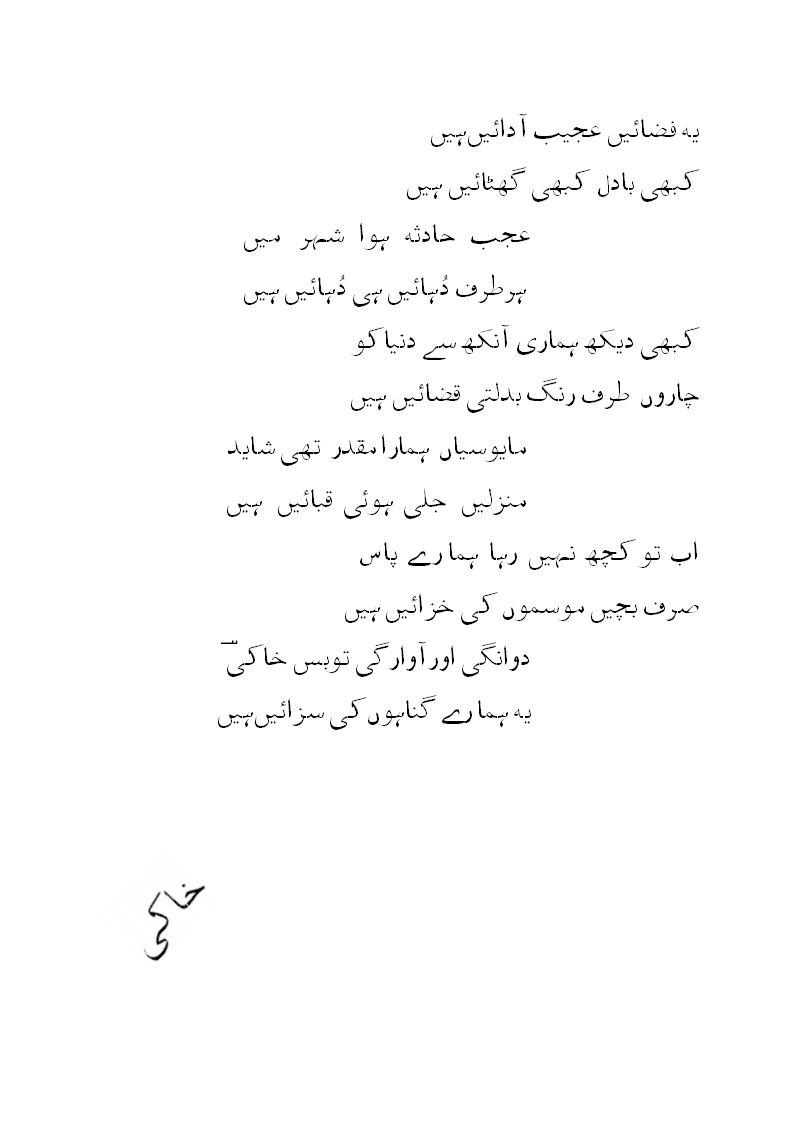 یہ فضائیں عجیب آدائیں ہیں
کبھی بادل کبھی گھٹائیں ہیں
عجب حادثہ ہوا شہر میں
ہر طرف دُہائیں ہی دُہائیں ہیں
کبھی دیکھ ہماری آنکھ سے دنیا کو
چاروں طرف رنگ بدلتی قضائیں ہیں
مایوسیاں ہمارا مقدر تھی شاید
منزلیں جلی ہوئی قبائیں ہیں
اب تو کچھ نہیں رہا ہمارے پاس
صرف بچیں موسموں کی خزائیں ہیں
دوانگی اور آوارگی تو بس خاکیؔ
یہ ہمارے گناہوں کی سزائیں ہیں
خاکی